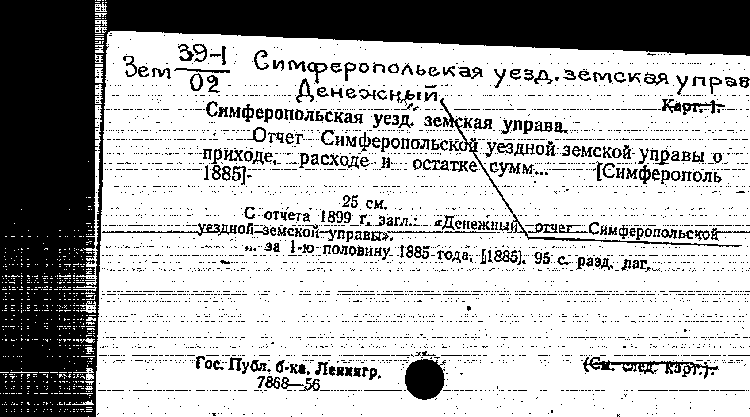 Зем 39-1/02 Симферопольская уезд. земская управ
Денежный
Карт. 1.
Симферопольская уезд. земская управа.
Отчет Симферопольской уездной земской управы о
приходе, расходе и остатке сумм... [Симферополь
1885]-
25 см.
С отчета 1899 г. загл.: «Денежный отчет Симферопольской
уездной земской управы».
... за 1-ю половину 1885 года. [1885]. 95 с. разд. паг.
Гос. Публ. б-ка, Ленингр.
7868—56
(См. след. карт.)-